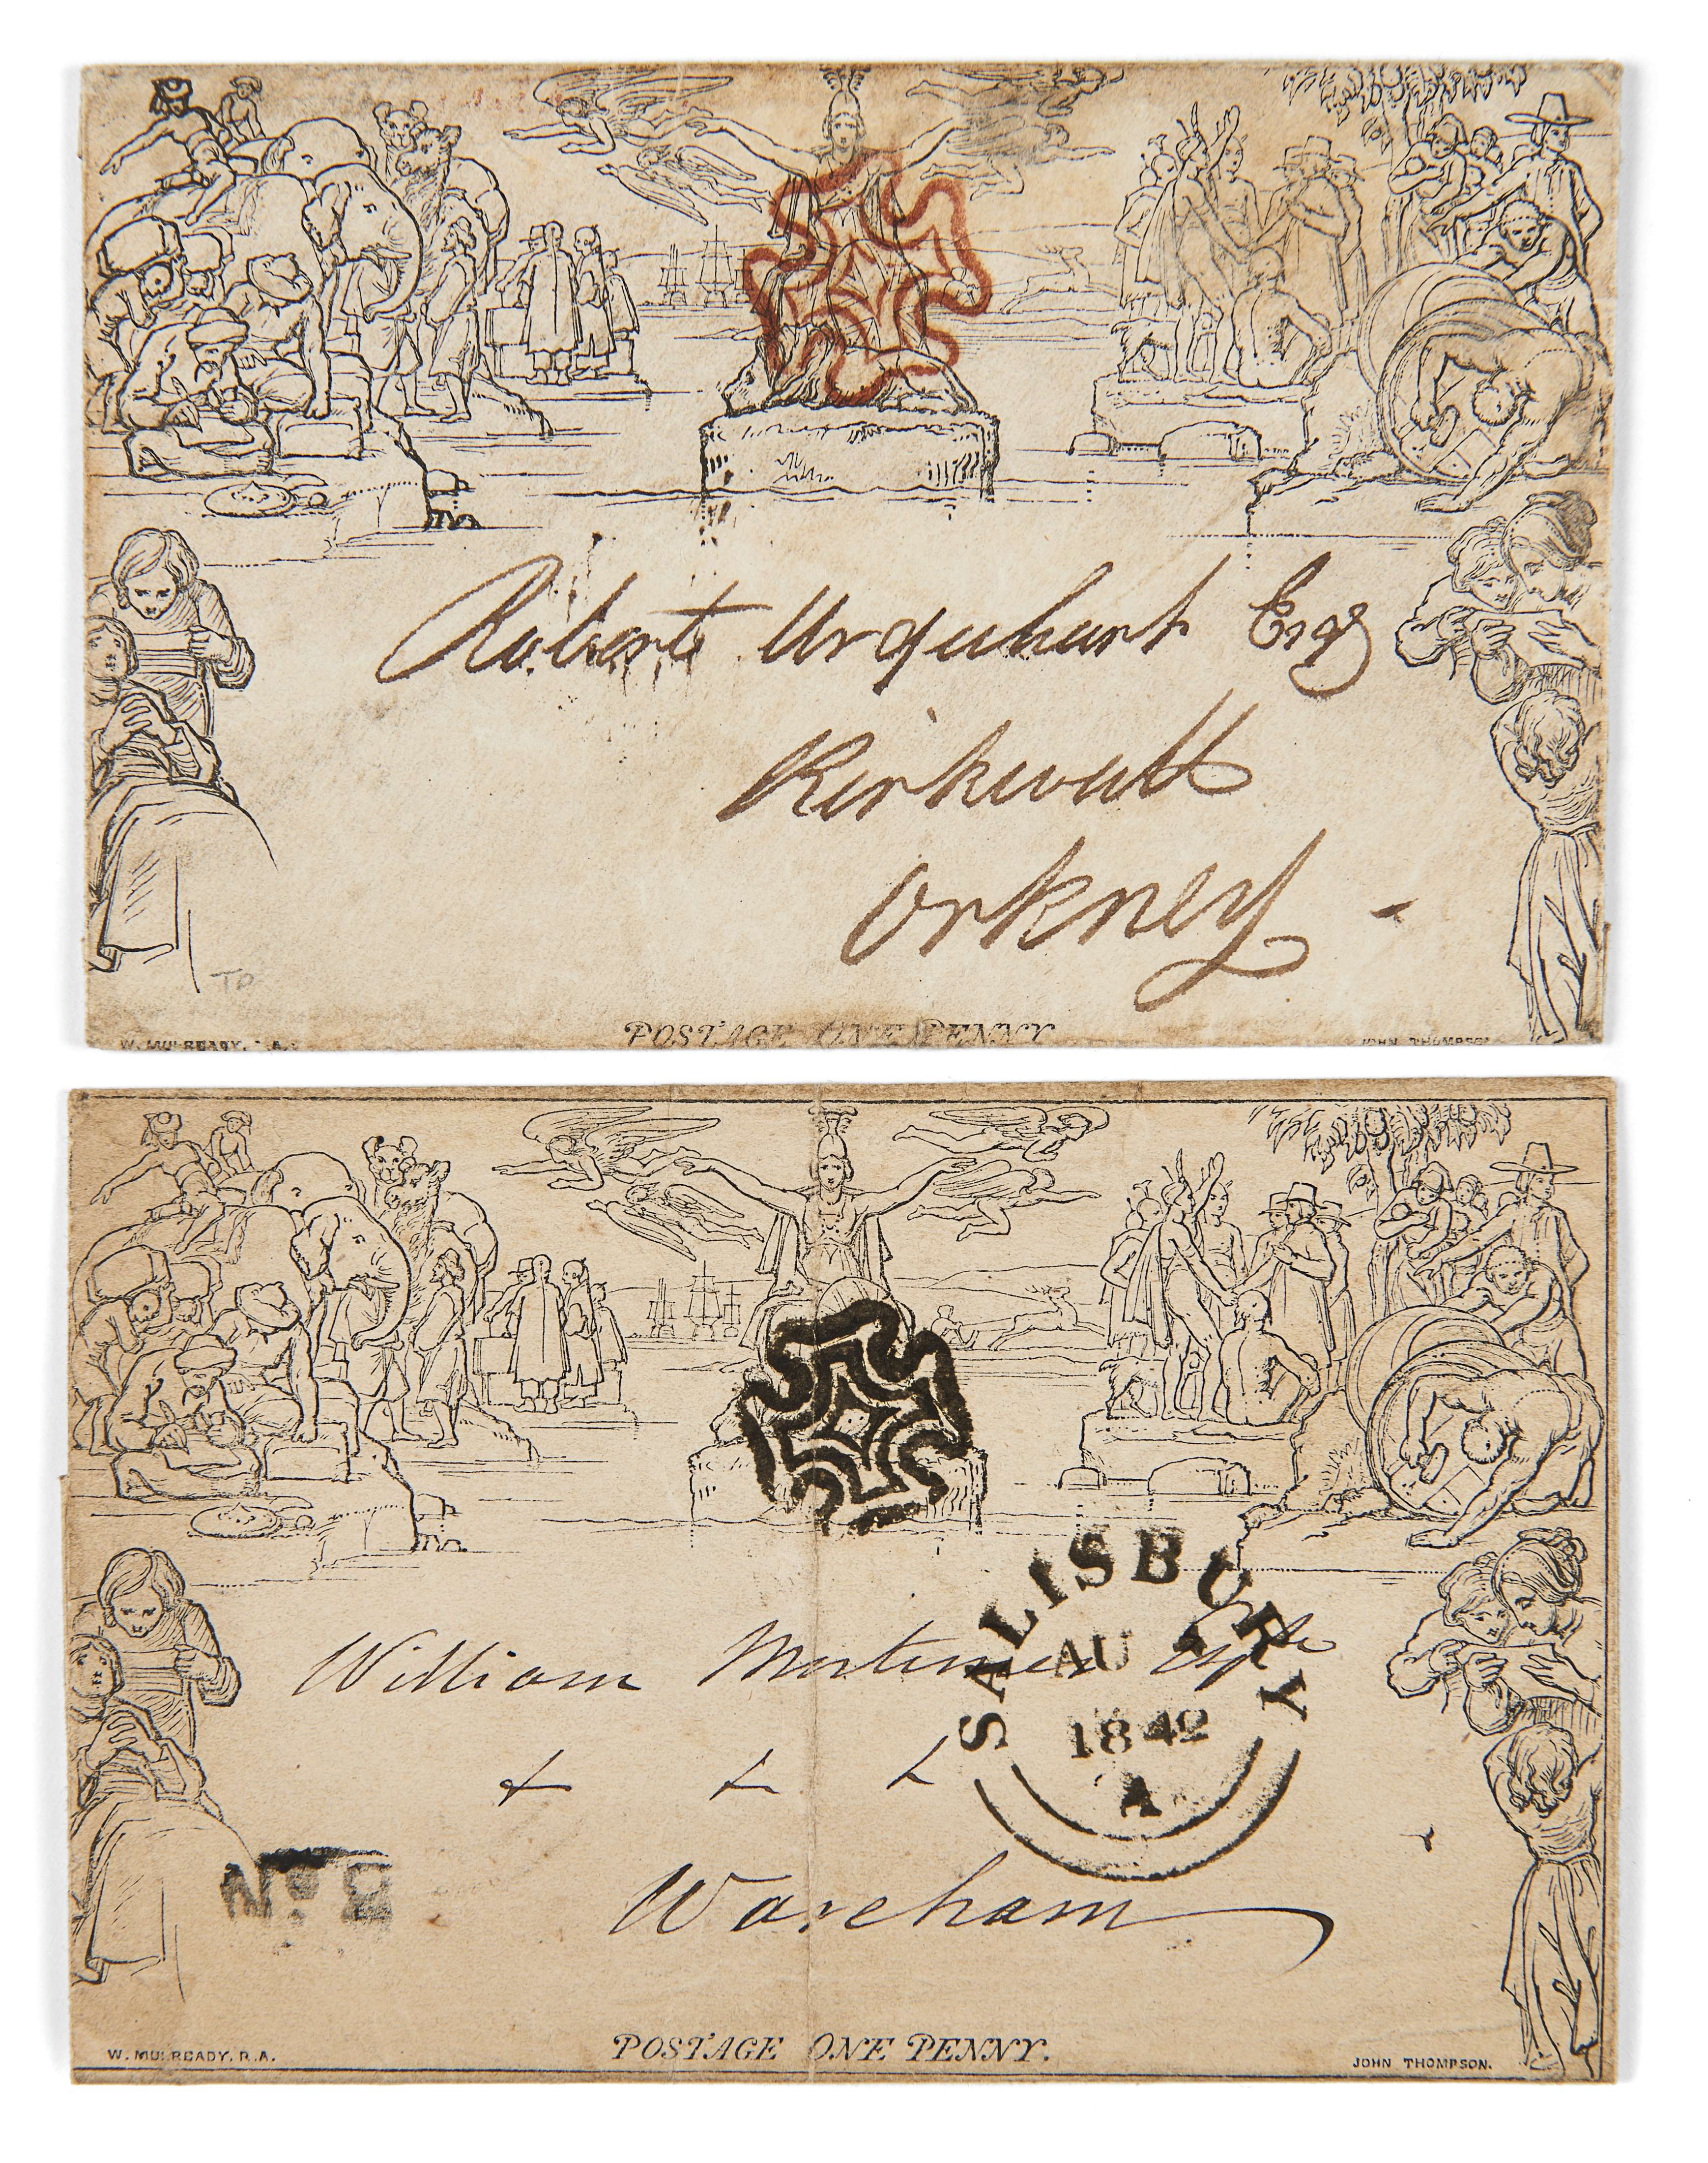 Robert Urquhart Esqr
Kirkwall
Orkney
TP
W. MULREADY, R.A.
POSTAGE ONE PENNY
JOHN THOMPSON
SALISBURY
AU
1842
A
William Mortimer Esqre
Wareham
No. 2
W. MULREADY, R.A.
POSTAGE ONE PENNY.
JOHN THOMPSON.